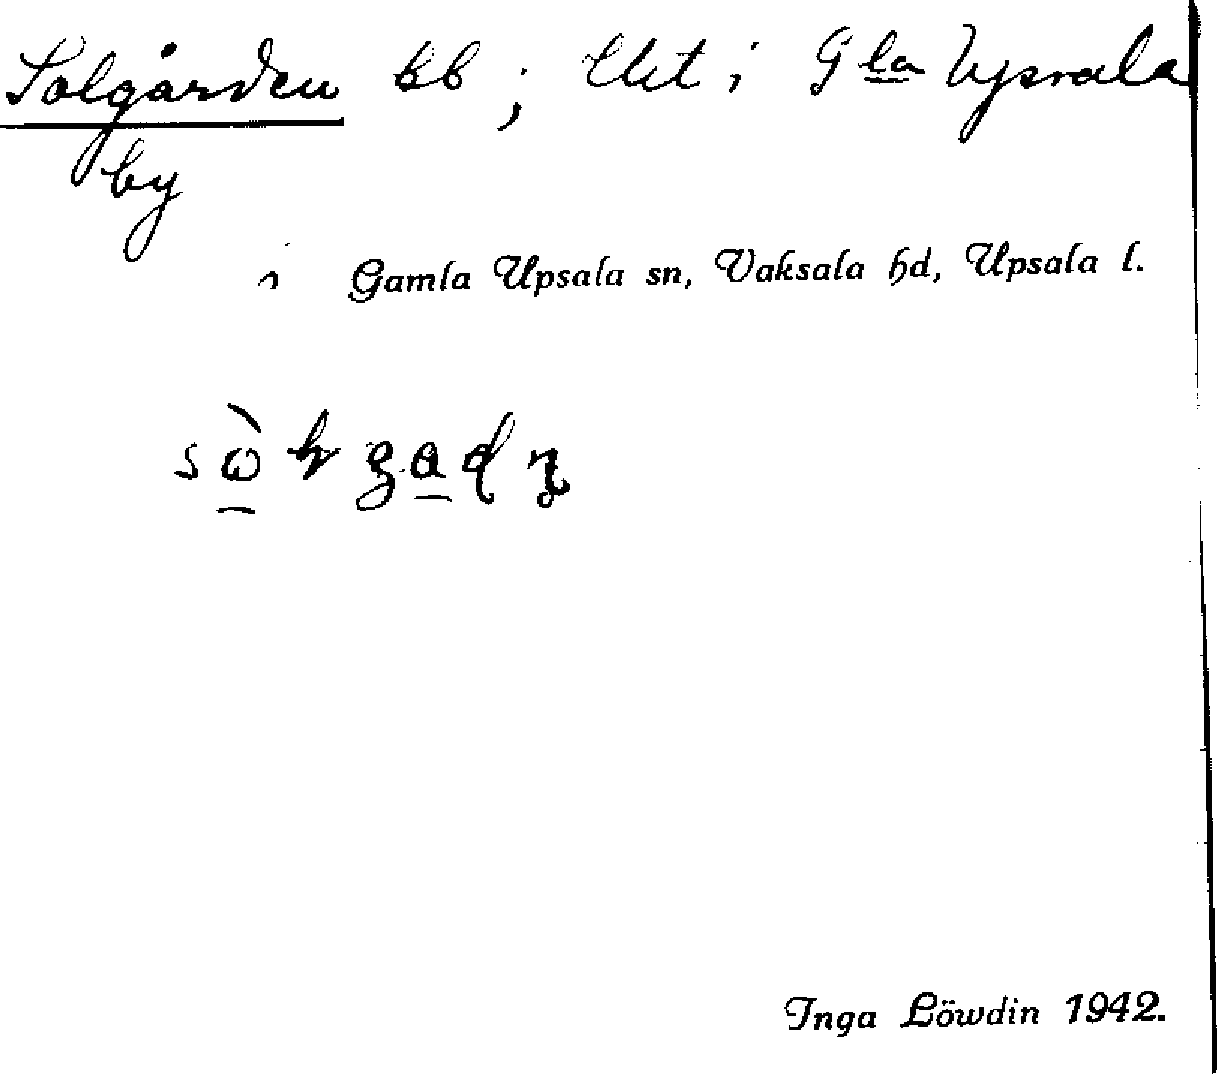 Solgården bb; Utst i Gla Upsala
by
i Gamla Upsala sn, Vaksala hd, Upsala l.
Inga Löwdin 1942.